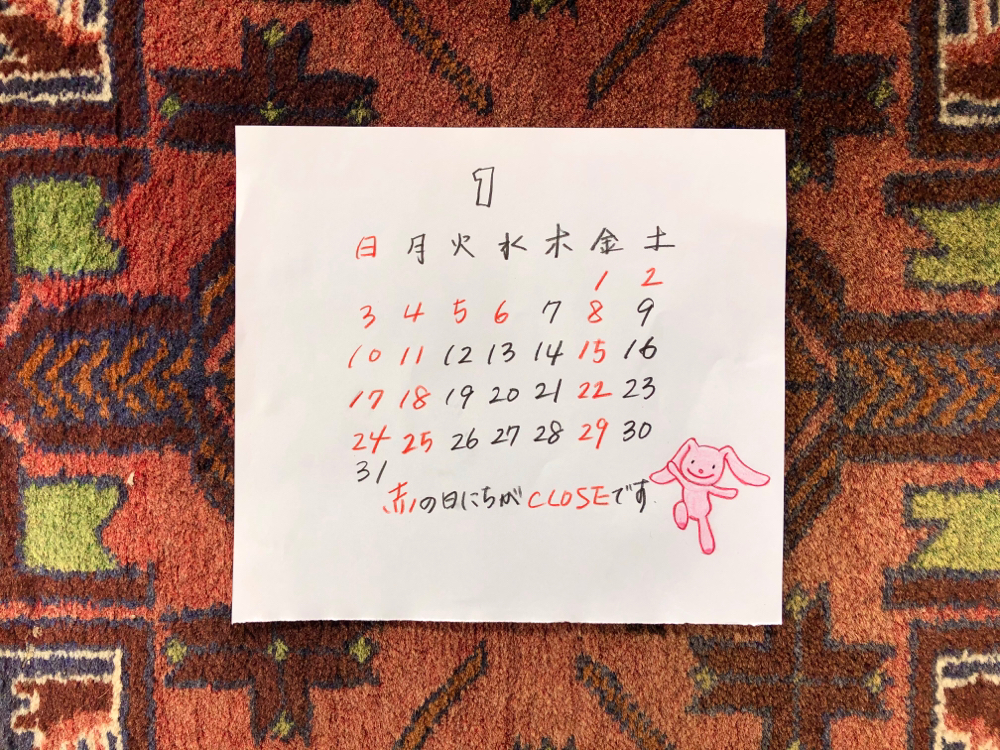 1
日 月 火 水 木 金 土
1 2
3 4 5 6 7 8 9
10 11 12 13 14 15 16
17 18 19 20 21 22 23
24 25 26 27 28 29 30
31
赤の日にちがCLOSEです